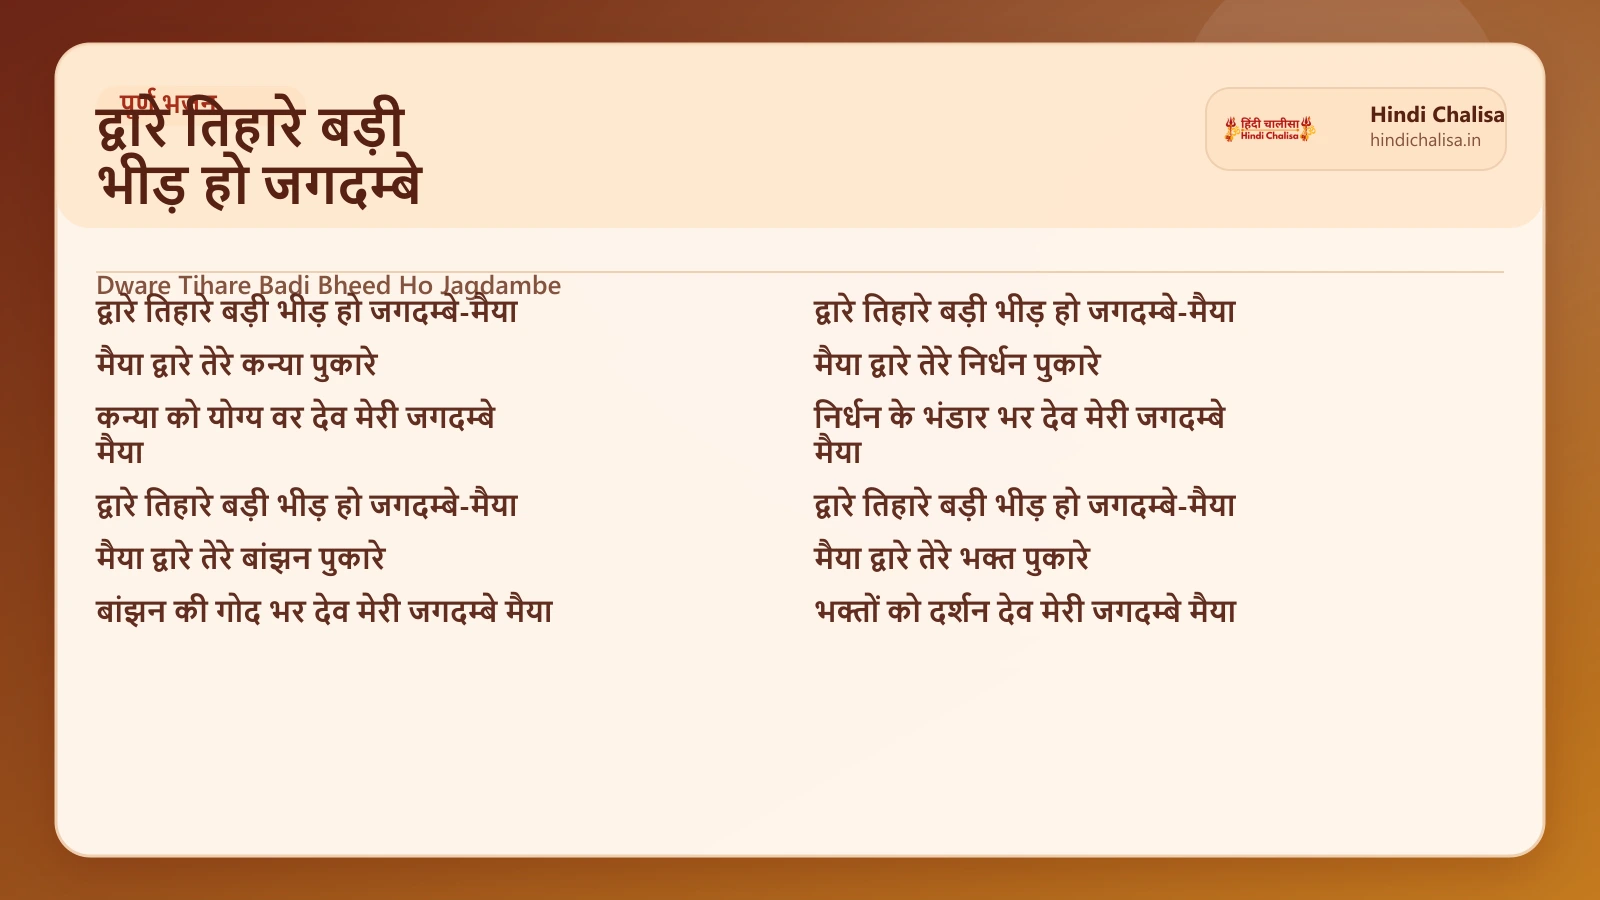 पूर्ण भजन
द्वारे तिहारे बड़ी
भीड़ हो जगदम्बे
हिंदी चालीसा
Hindi Chalisa
Hindi Chalisa
hindichalisa.in
Dware Tihare Badi Bheed Ho Jagdambe
द्वारे तिहारे बड़ी भीड़ हो जगदम्बे-मैया
मैया द्वारे तेरे कन्या पुकारे
कन्या को योग्य वर देव मेरी जगदम्बे
मैया
द्वारे तिहारे बड़ी भीड़ हो जगदम्बे-मैया
मैया द्वारे तेरे बांझन पुकारे
बांझन की गोद भर देव मेरी जगदम्बे मैया
द्वारे तिहारे बड़ी भीड़ हो जगदम्बे-मैया
मैया द्वारे तेरे निर्धन पुकारे
निर्धन के भंडार भर देव मेरी जगदम्बे
मैया
द्वारे तिहारे बड़ी भीड़ हो जगदम्बे-मैया
मैया द्वारे तेरे भक्त पुकारे
भक्तों को दर्शन देव मेरी जगदम्बे मैया